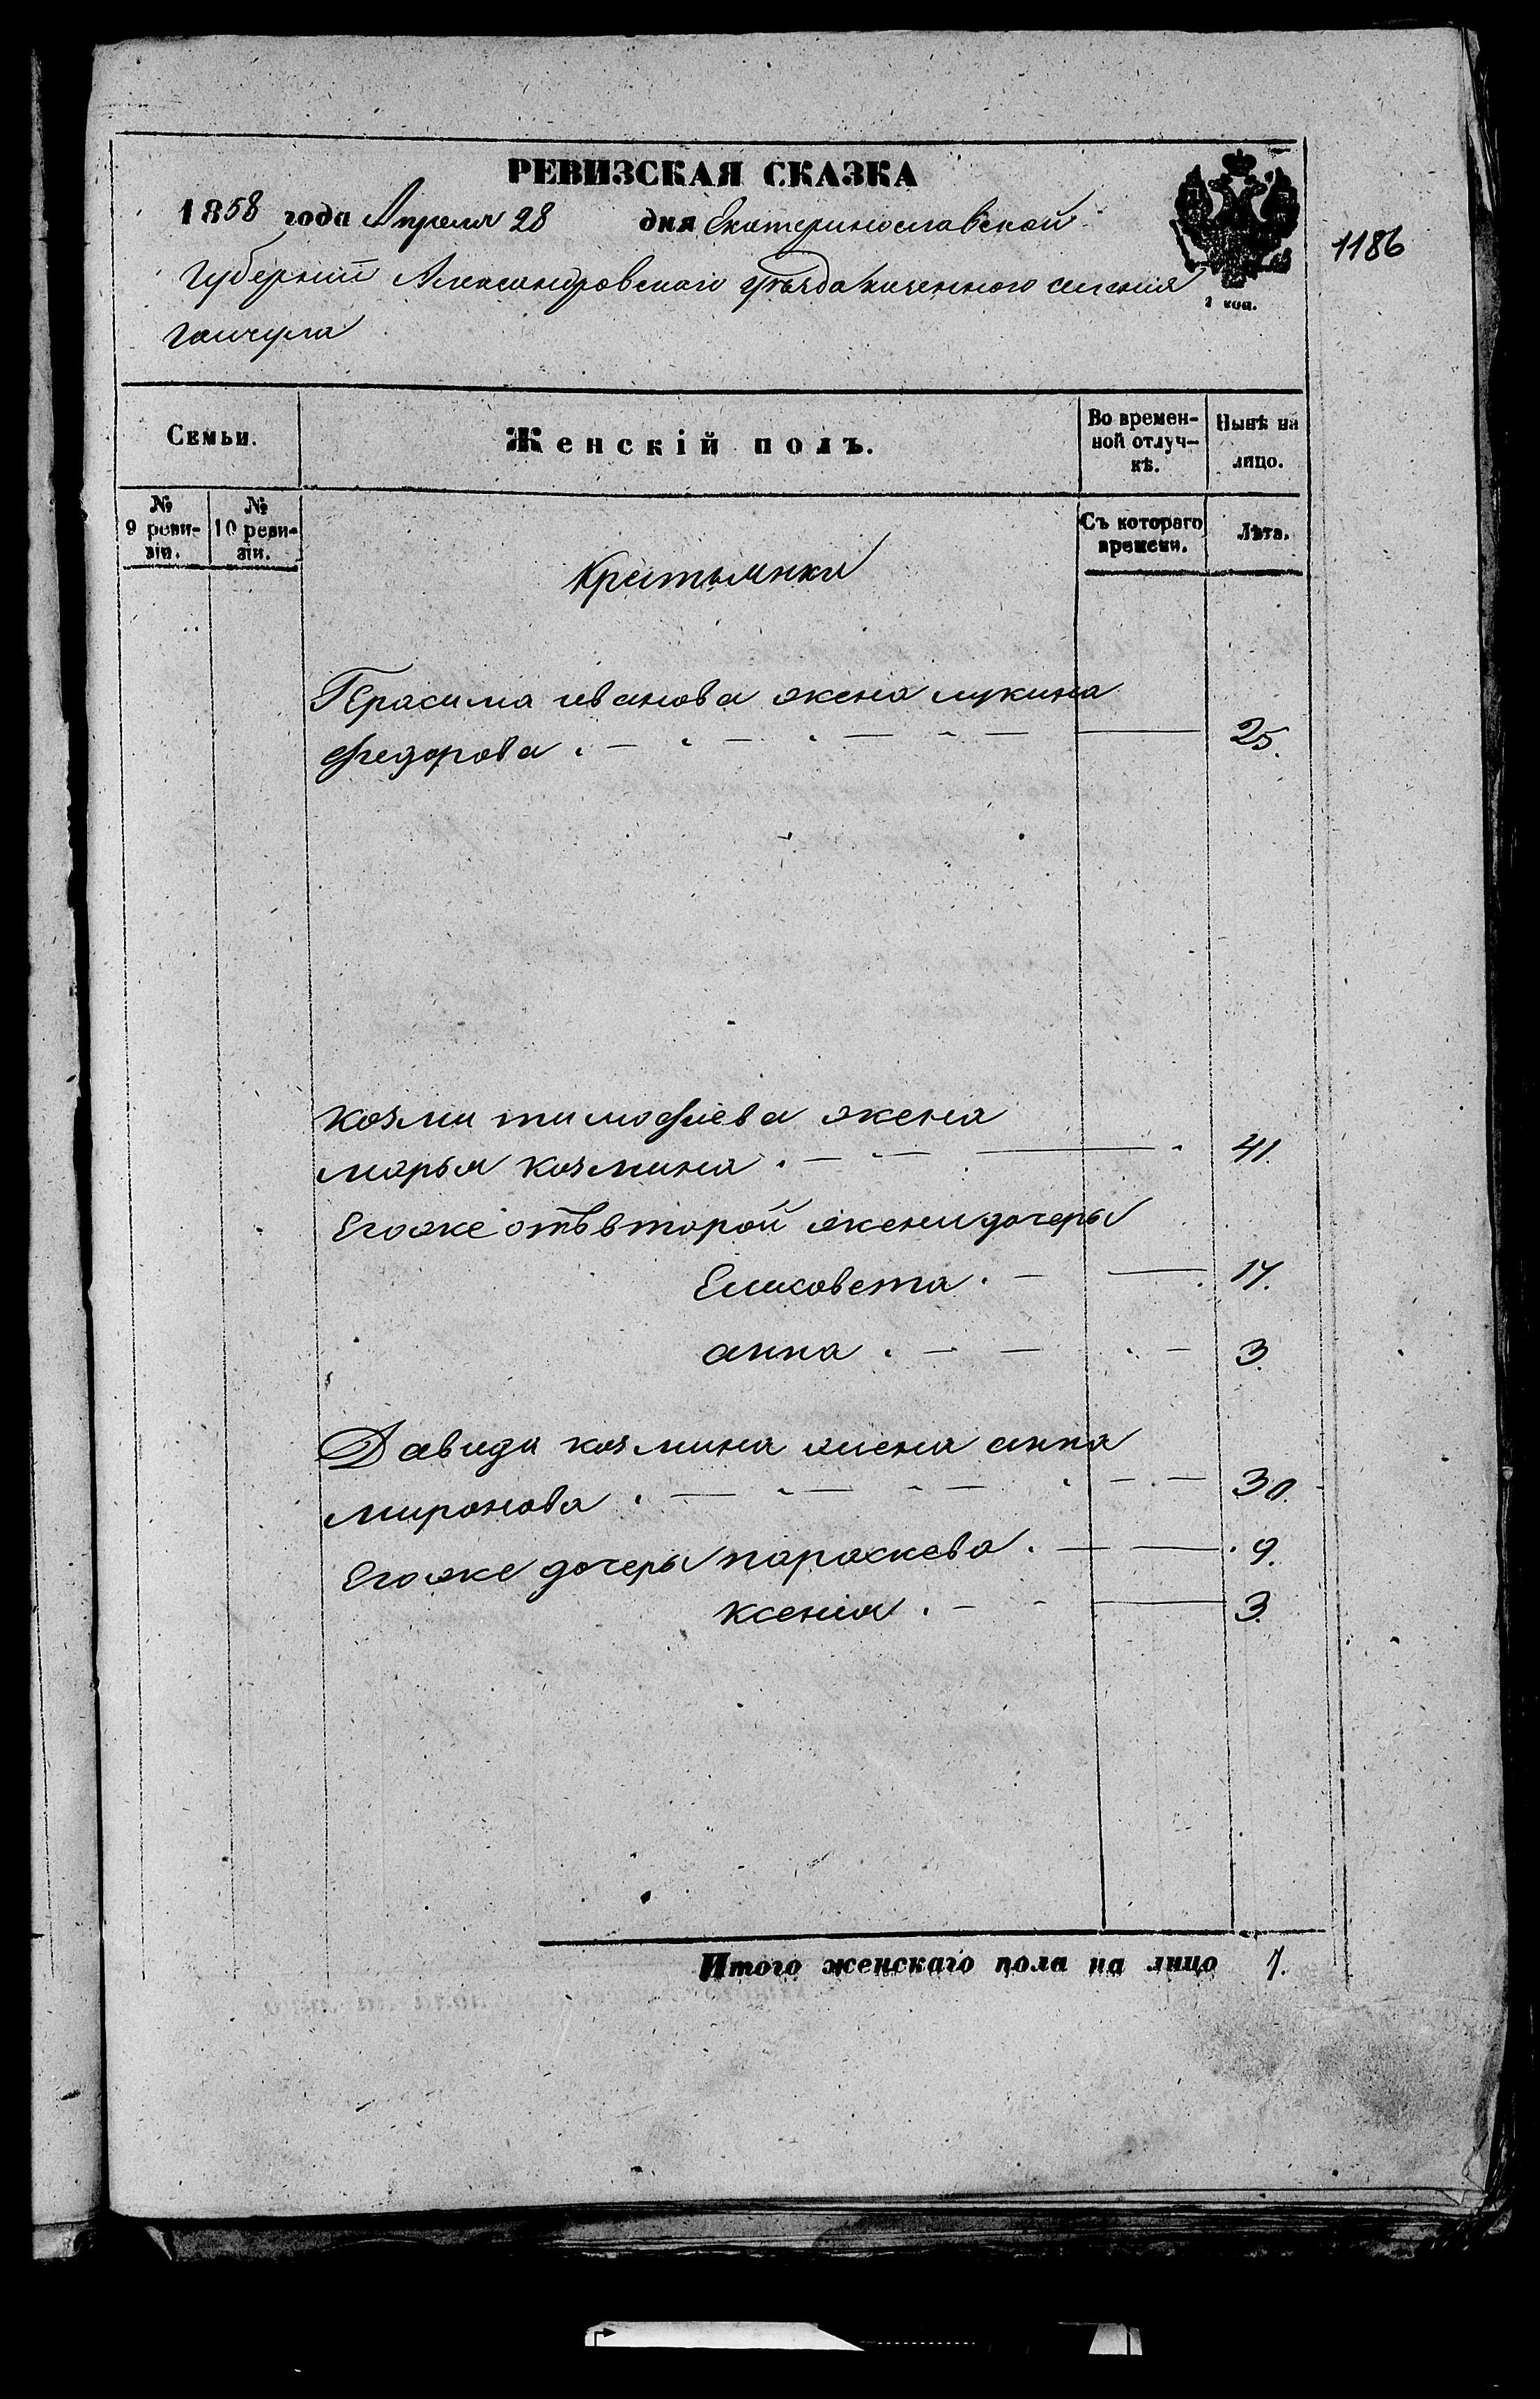 РЕВИЗСКАЯ СКАЗКА
1858 года Апреля 28 дня Екатеринославской
1186
Губернии Александровскаго уѣзда казенного селения
1 коп.
Гаичула
Семьи.
Женскій полъ.
Во времен-
ной отлуч-
кѣ.
Нынѣ на
лицо.
№
9 реви-
зіи.
№
10 реви-
зіи.
Съ котораго
времени.
Лѣта.
Крестьянки
Герасима иванова жена лукина
федорова 25.
козми тимофиева жена
марья козмина 41.
Егоже отъ второй жени дочеры
Елисовета 17.
анна 3.
Давида козмина жена анна
миронова 30.
Егоже дочеры параскева 9.
ксения 3.
Итого женскаго пола на лицо 7.